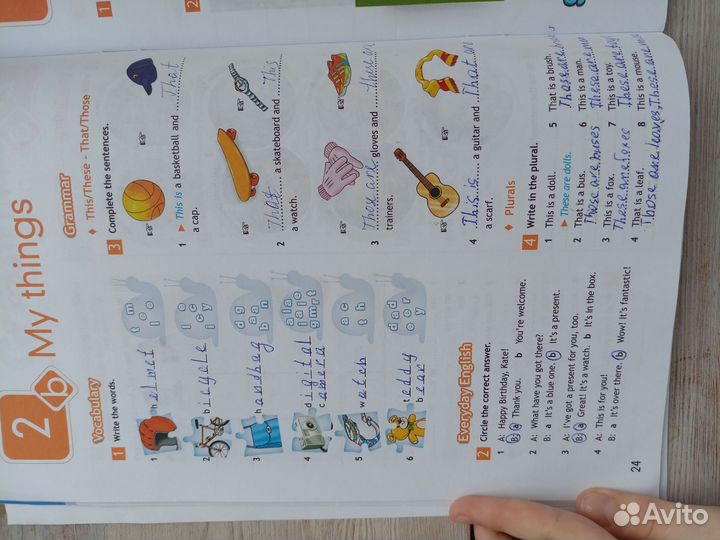 2
b
My things
Vocabulary
1 Write the words.
1 helmet
t m
l o o
2 bicycle
3 handbag
d g
a a n
b n
4 digital
camera
a l a
5 watch
a c
t h
6 teddy
bear
d a d
Everyday English
2 Circle the correct answer.
1 A: Happy Birthday, Kate!
B: a Thank you. b You're welcome.
2 A: What have you got there?
B: a It's a blue one. b It's a present.
3 A: I've got a present for you, too.
B: a Great! It's a watch. b It's in the box.
4 A: This is for you!
B: a It's over there. b Wow! It's fantastic!
24
Grammar
♦ This/These - That/Those
3 Complete the sentences.
1 ► This is a basketball and That
a cap.
2 That a skateboard and This
a watch.
3 These are gloves and
trainers.
4 This is a guitar and That
a scarf.
♦ Plurals
4 Write in the plural.
1 This is a doll.
► These are dolls.
2 That is a bus.
Those are buses
3 This is a fox.
These are foxes
4 That is a leaf.
Those are leaves,
5 That is a brush.
Those are
6 This is a man.
These are
7 This is a toy.
These are
8 This is a mouse.
These are
2
1
Avito